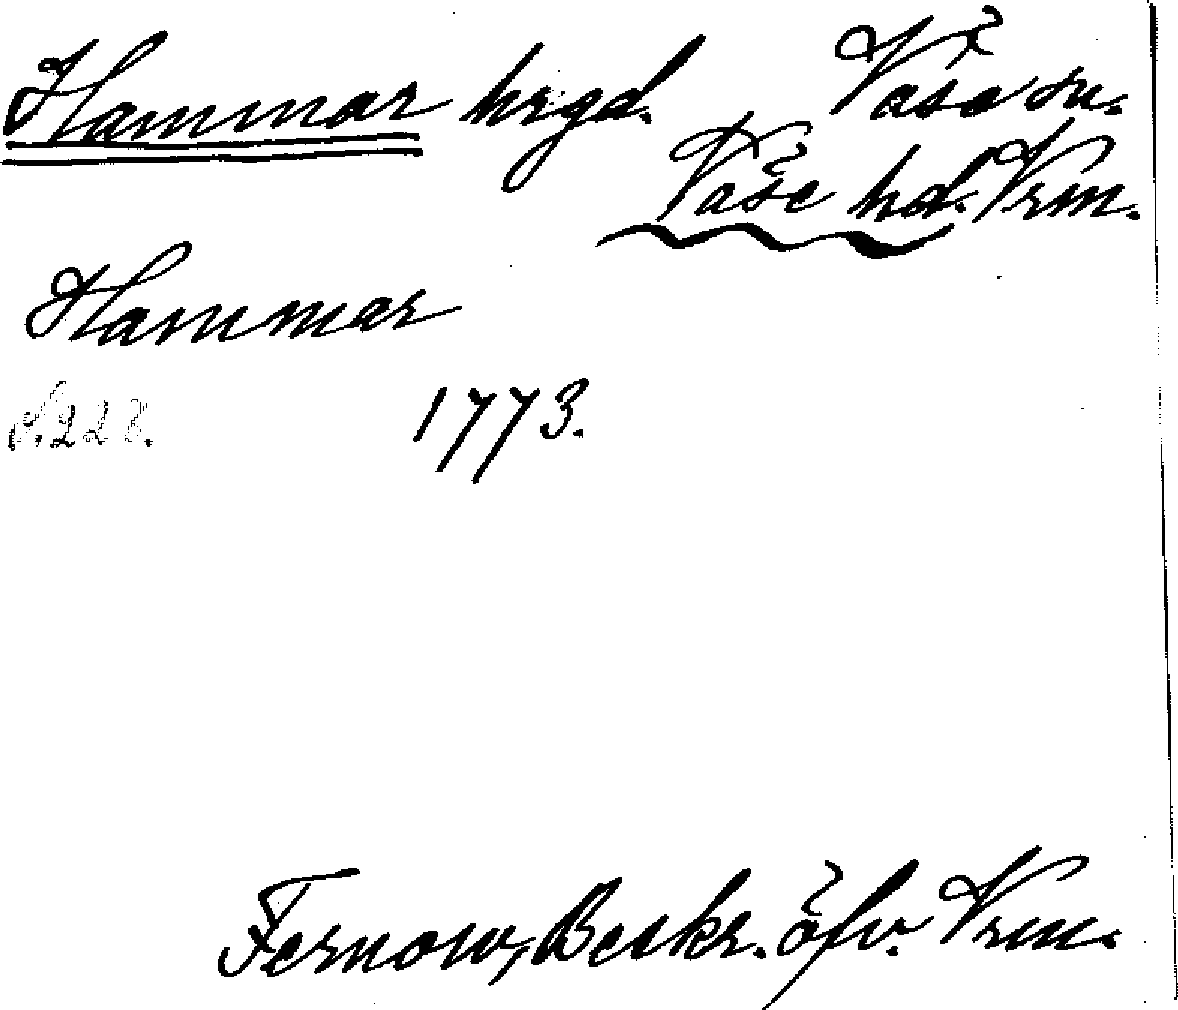 Hammar hrgd. Väse sn.
Väse hd. Vrm.
Hammar
s. 228. 1773.
Fernow, Beskr. öfv. Vrm.